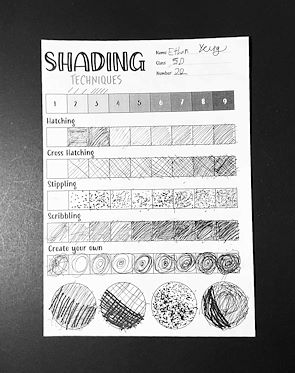 SHADING
TECHNIQUES
Name Ethan
Class 5D
Number 22
1 2 3 4 5 6 7 8 9
Hatching
Cross Hatching
Stippling
Scribbling
Create your own